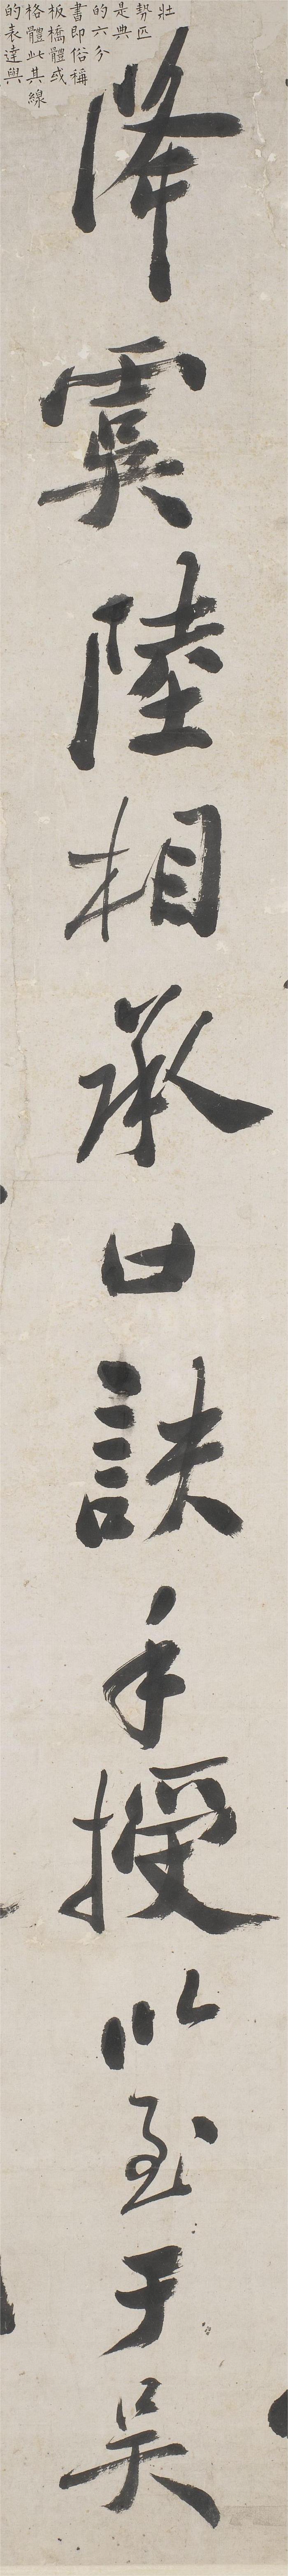 降虞陸相承口訣手授以至于吳
壯
勢匹
是典
的六分
書即俗稱
板橋體或
格體此其線
的表達與